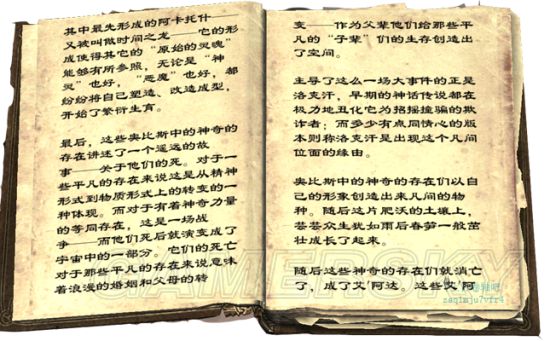 其中最先形成的阿卡托什—
又被叫做时间之龙——它的形
成使得其它的“原始的灵魂”
能够有所参照，无论是“神
灵”也好，“恶魔”也好，都
纷纷将自己塑造、改造成型，
开始了繁衍生育。
最后，这些奥比斯中的神奇的
存在讲述了一个遥远的故
事——关于他们的死。对于一
些平凡的存在来说这是从精神
形式到物质形式上的转变的一
种体现。而对于有着神奇力量
的等同存在，这是一场战
争——而他们死后就演变成了
宇宙中的一部分。它们的死亡
对于那些平凡的存在来说意味
着浪漫的婚姻和父母的转
变——作为父辈他们给那些平
凡的“子辈”们的生存创造出
了空间。
主导了这么一场大事件的正是
洛克汗，早期的神话传说都在
极力地丑化它为招摇撞骗的欺
诈者；而多少有点同情心的版
本则称洛克汗是出现这个凡间
位面的缘由。
奥比斯中的神奇的存在们以自
己的形象创造出来凡间的物
种。随后这片肥沃的土壤上，
芸芸众生犹如雨后春笋一般茁
壮成长了起来。
随后这些神奇的存在们就消亡
了，成了艾'阿达。这些艾'阿
GAMERSKY
zaqimju7vfr4